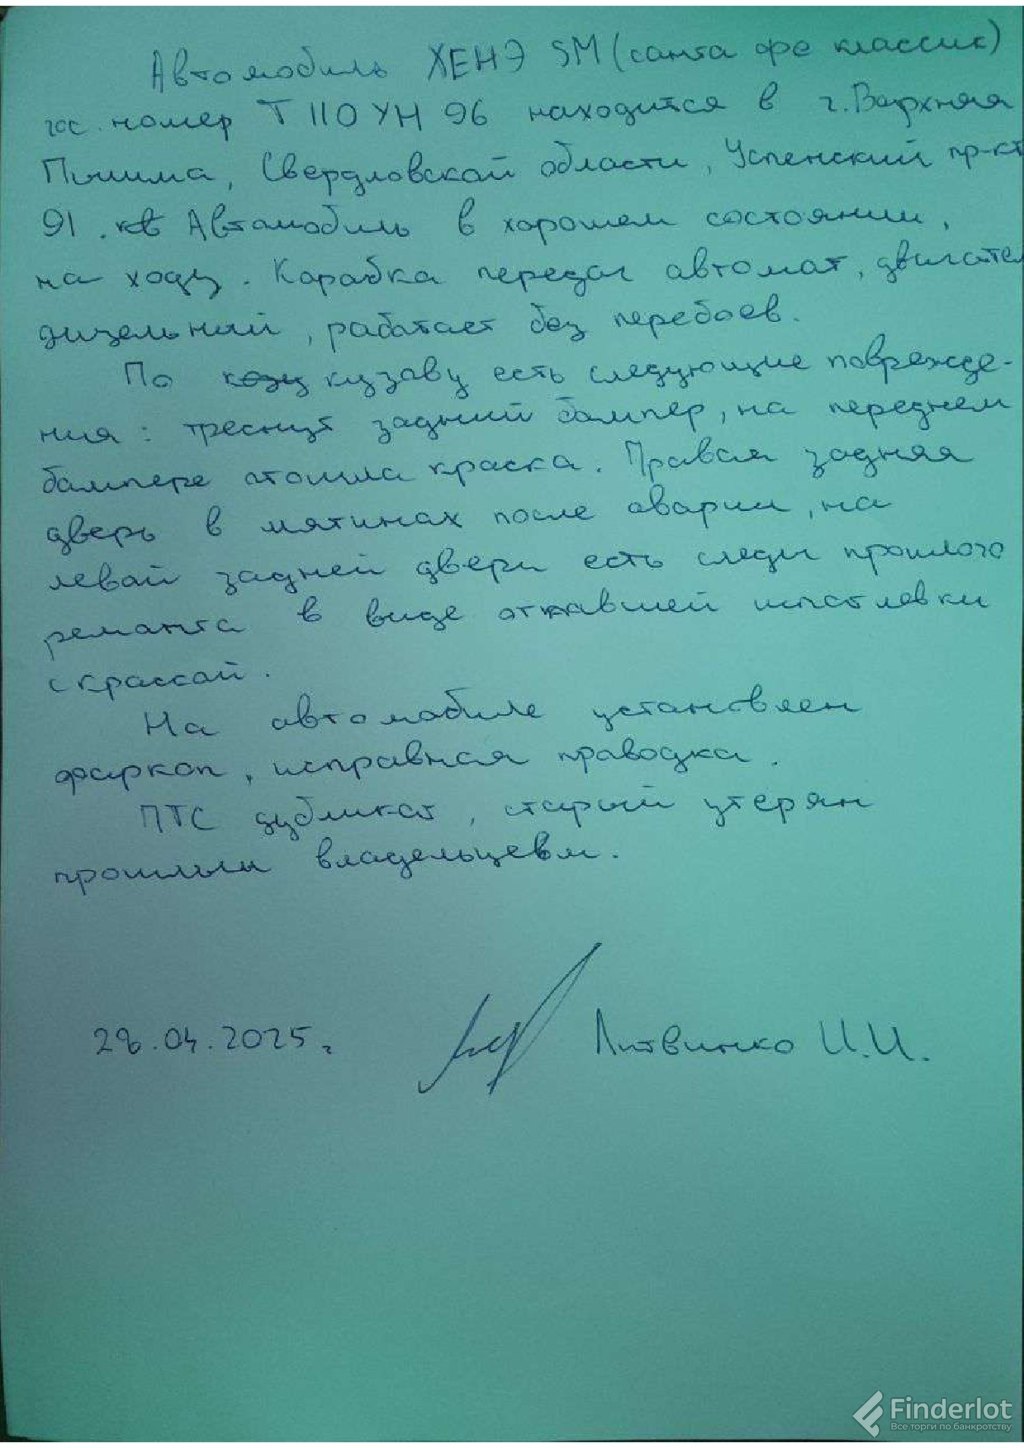 Автомобиль ХЕНЭ SM (санта фе классик)
гос. номер Т 110 УН 96 находится в г. Верхняя
Пышма, Свердловской области, Успенский пр-кт
91. Автомобиль в хорошем состоянии,
на ходу. Коробка передач автомат, двигател
дизельный, работает без перебоев.
По кузову есть следующие поврежде-
ния: треснут задний бампер, на переднем
бампере отошла краска. Правая задняя
дверь в мятинах после аварии, на
левой задней двери есть следы прошлого
ремонта в виде отпавшей шпатлевки
с краской.
На автомобиле установлен
фаркоп, исправная проводка.
ПТС дубликат, старый утерян
прошлым владельцем.
28.04.2025г. Литвинко И.И.
Finderlot
Все торги по банкротству